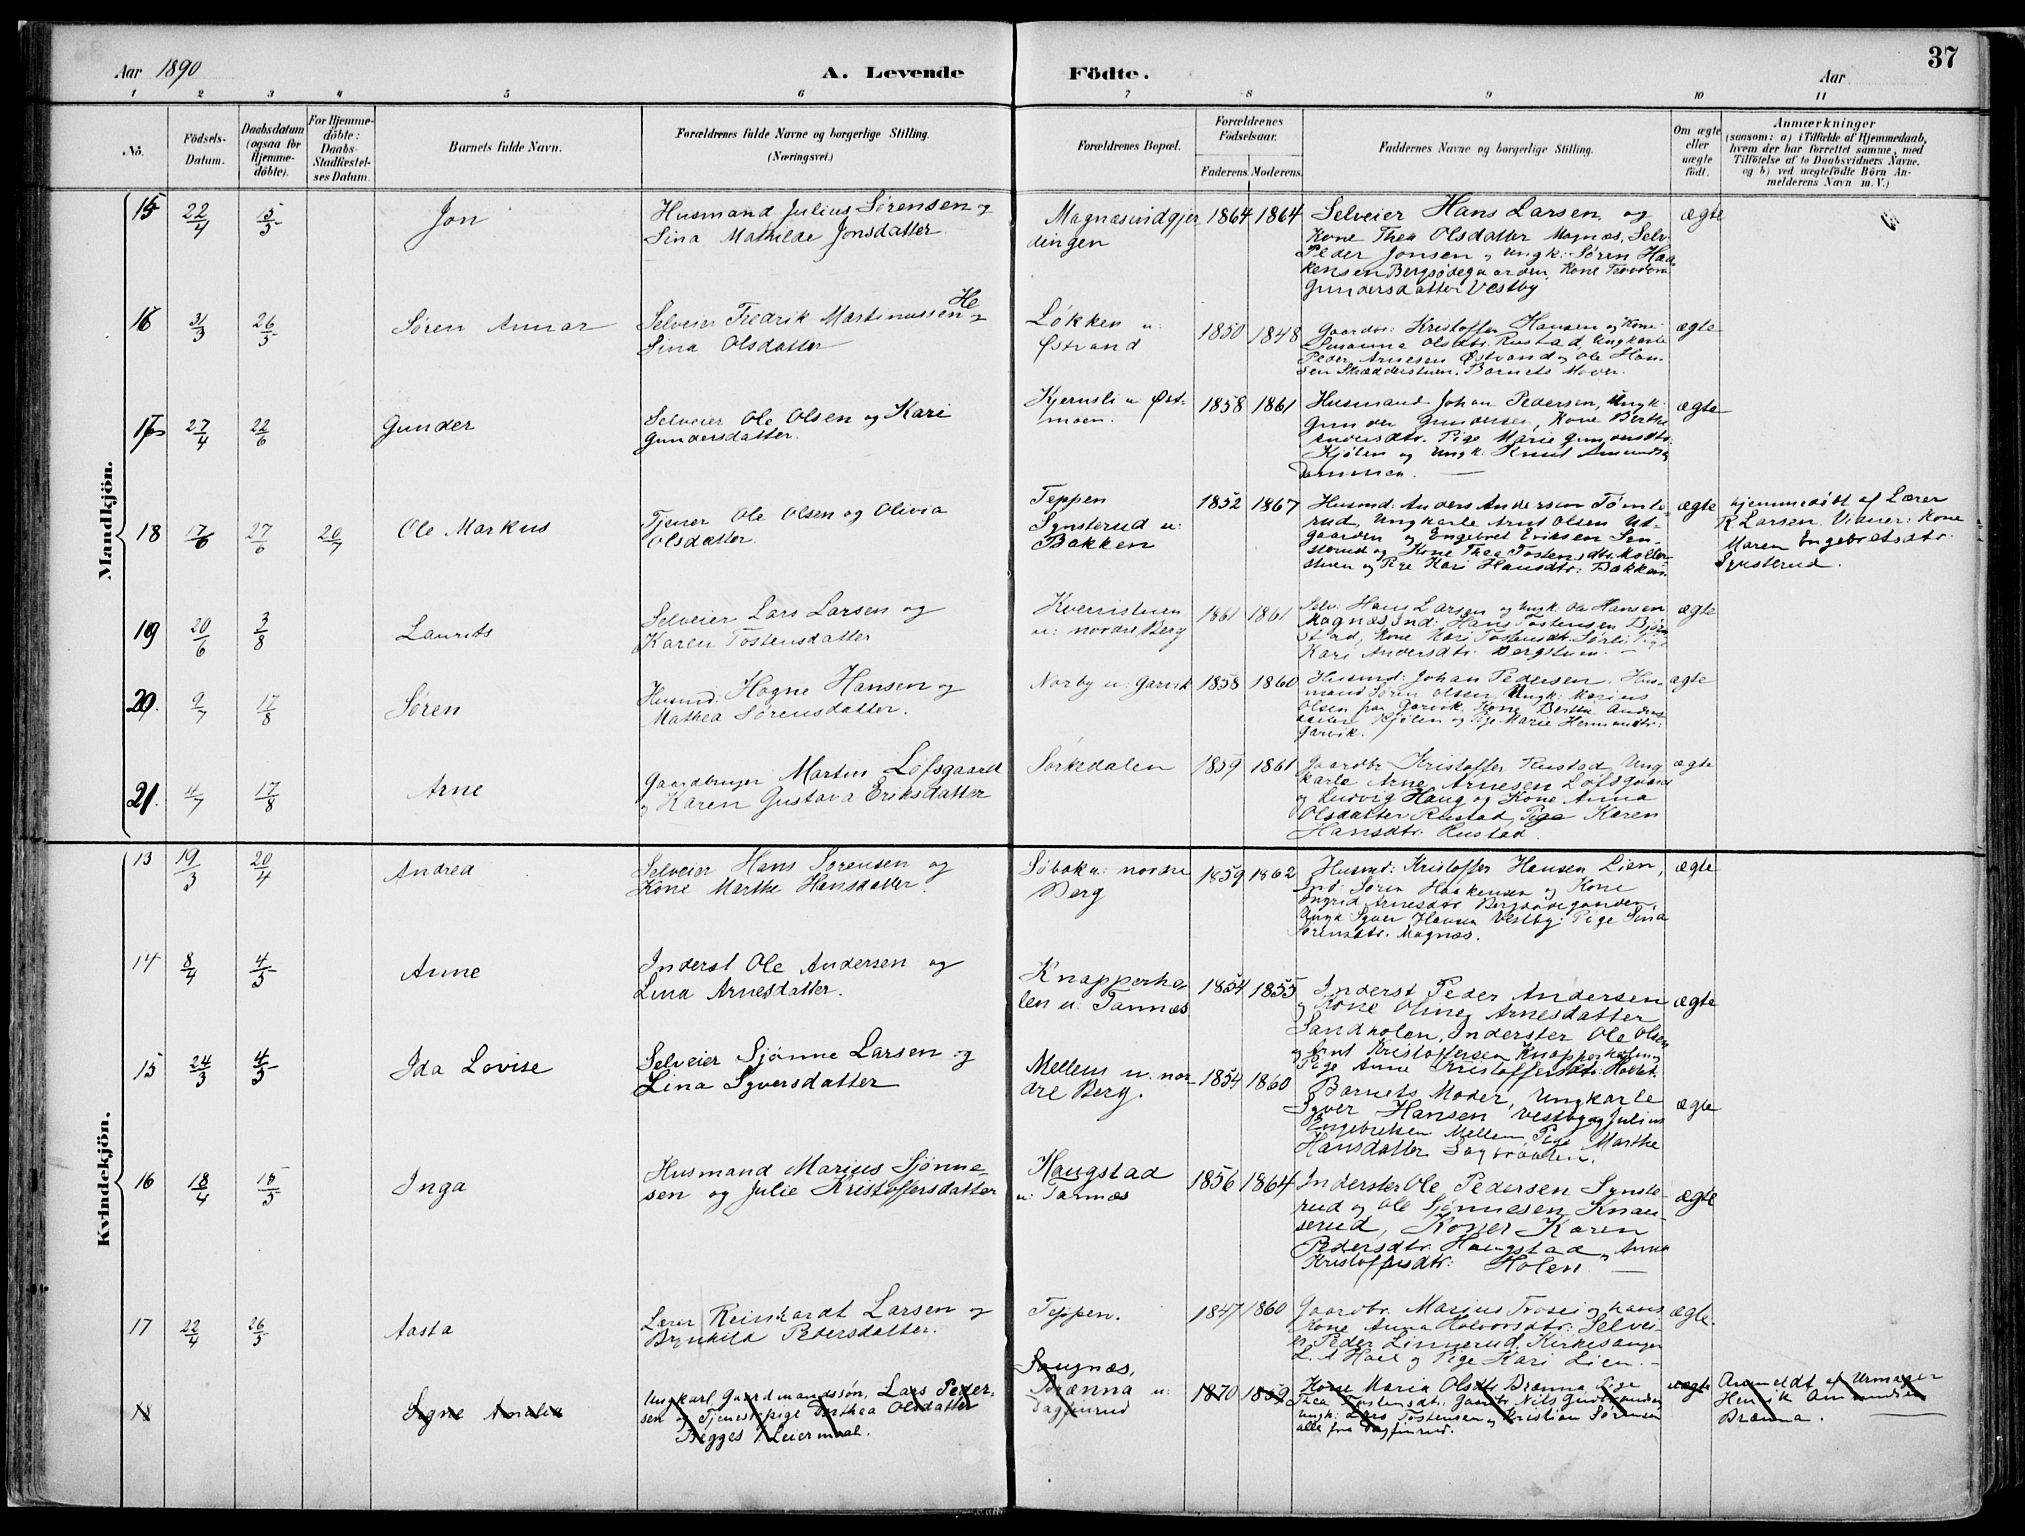 37
Aar 1890
A. Levende
Födte.
Aar
1 2 3 4 5 6 7 8 9 10 11
No.
Födsels-
Datum.
Daabsdatum
(ogsaa for
Hjemme-
döbte).
For Hjemme-
döbte:
Daabs-
Stadfæstel-
ses Datum.
Barnets fulde Navn.
Forældrenes fulde Navne og borgerlige Stilling.
(Næringsvei.)
Forældrenes Bopæl.
Forældrenes
Födselsaar.
Faderens. Moderens.
Faddernes Navne og borgerlige Stilling.
Om ægte
eller
uægte
födt.
Anmærkninger
(saasom: a) i Tilfælde af Hjemmedaab,
hvem der har forrettet samme, med
Tilföielse af to Daabsvidners Navne.
og b) ved uægtefödte Börn An-
melderens Navn m. V.)
Mandkjön.
15 22/4 15/5 Jon
Husmand Julius Sørensen og
Sina Mathilde Jonsdatter
Magnæsindgjer
dingen
1864 1864
Selveier Hans Larsen og
Kone Thea Olsdatter Magnæs, Selv.
Peder Jonsen og Ungk: Søren Haa-
kensen Bergsødegaarden, Kone
Gundersdatter Vestby
ægte
16 31/3 26/5 Søren Annar
Selveier Fredrik Martinussen og He
Sina Olsdatter
Løkken u:
Østrand
1850 1848
Gaardbr: Kristoffer Hansen og Kone
Susanna Olsdtr. Rustad, Ungkarle
Peder Arnesen Østrand og Ole Han-
sen Skrædderstuen. Barnets Moder.
ægte
17 27/4 22/6 Gunder
Selveier Ole Olsen og Kari
Gundersdatter.
Kjernsli u Øst-
moen.
1858 1861
Husmand Johan Pedersen, Ungk:
Gunder Gundersen, Kone Berthe
Andersdtr. Pige Marie Gundersdtr.
Kjølen og Ungk: Knut Amundsen
ægte
18 17/6 27/6 20/7 Ole Markus
Tjener Ole Olsen og Olivia
Olsdatter.
Teppen
Synsterud u:
Bakken
1852 1867
Husmd: Anders Andersen Tømte-
rud, Ungkarle Arnt Olsen Ut-
gaarden og Engebret Eriksen Syn-
sterud og Kone Thea Tostensdtr. Møller-
stuen og Pige Kari Hansdtr: Bakken.
ægte
hjemmedøbt af Lærer
R Larsen. Vidner: Kone
Maren Engebretsdtr.
Synsterud.
19 20/6 3/8 Laurits
Selveier Lars Larsen og
Karen Tostensdatter
Kverristuen
u: nordre Berg
1861 1861
Selv: Hans Larsen og Ungk. Ole Hansen
Magnæs, Ind: Hans Tostensen Bjøn
stad, Kone Kari Tostensdtr. Sørli Pige
Kari Andersdtr. Bergstuen.
ægte
20. 9/7 17/8 Søren
Husmd: Hagne Hansen og
Mathea Sørensdatter.
Norby u: Garvik
1858 1860
Husmd: Johan Pedersen, Hus-
mand Søren Olsen, Ungk: Marius
Olsen fra Garvik. Kone Berthe Anders-
datter Kjølen og Pige Marie Hermandsdtr:
Garvik.
ægte
21. 4/7 17/8 Arne
Gaardbruger Martin Lofsgaard
og Karen Gustava Eriksdatter
Sørkedalen
1859 1861
Gaardbr. Kristoffer Rustad, Ung
karle Arne Arnesen Lofsgaard
og Ludvig Haug og Kone Anna
Olsdatter Rustad, Pige Karen
Hansdtr. Rustad.
ægte
Kvindekjön.
13 19/3 20/4 Andrea
Selveier Hans Sørensen og
Kone Marthe Hansdatter.
Søbak u: nordre
Berg
1859 1862
Husmd: Kristoffer Hansen Lien,
Ind: Søren Haakensen og Kone
Ingrid Arnesdtr Bergsødegaarden,
Ungk Syver Hansen Vestby. Pige Sina
Sørensdtr. Magnæs.
ægte
14 8/4 4/5 Anne
Inderst Ole Andersen og
Lina Arnesdatter.
Knapperho-
len u: Tannæs
1854 1855
Inderst Peder Andersen
og Kone Oline Arnesdatter
Sandholen, Inderster Ole Olsen
og Arnt Kristoffersen Knapperholen og
Pige Anne Kristoffersdtr:
ægte
15 24/3 4/5 Ida Lovise
Selveier Sjønne Larsen og
Lina Syversdatter
Mellem u: nor-
dre Berg.
1854 1860
Barnets Moder, Ungkarle
Syver Hansen Vestby og Julius
Engebretsen Mellem, Pige Marthe
Hansdatter Sagbraaten.
ægte
16 18/4 15/5 Inga
Husmand Marius Sjønne-
sen og Julie Kristoffersdatter
Haugstad
u: Tannæs
1856 1864
Inderster Ole Pedersen Synste-
rud og Ole Sjønnesen Knau-
serud, Koner Karen
Pedersdtr. Haugstad og Anna
Kristoffersdtr: Holen
ægte
17 22/4 26/5 Aasta
Lærer Reinhardt Larsen og
Brynhild Pedersdatter.
Teppen.
1847 1860
Gaardbr. Marius Frøsei og hans
Kone Anna Halvorsdtr. Selvei-
er Peder Linnerud. Kirkesanger
L. A Hoel og Pige Kari Lien.
ægte.
18 Signe Amalie
Ungkarl Gaardmandssøn, Lars Peder-
sen og Tjenestepige Dorthea Olsdatter
Begges 1 Leiermaal.
Sognæs,
Brænna u:
Dagfinrud
1870 1859
Kone Maria Olsdtr Brænna Pige
Thea Tostensdtr. Gaardbr Nils Gulbrandsen
Ungk: Lars Tostensen og Kristian Sørensen
alle fra Dagfinrud.
uægte
Anmeldt af Urmager
Henrik Amundsen
Brænna.